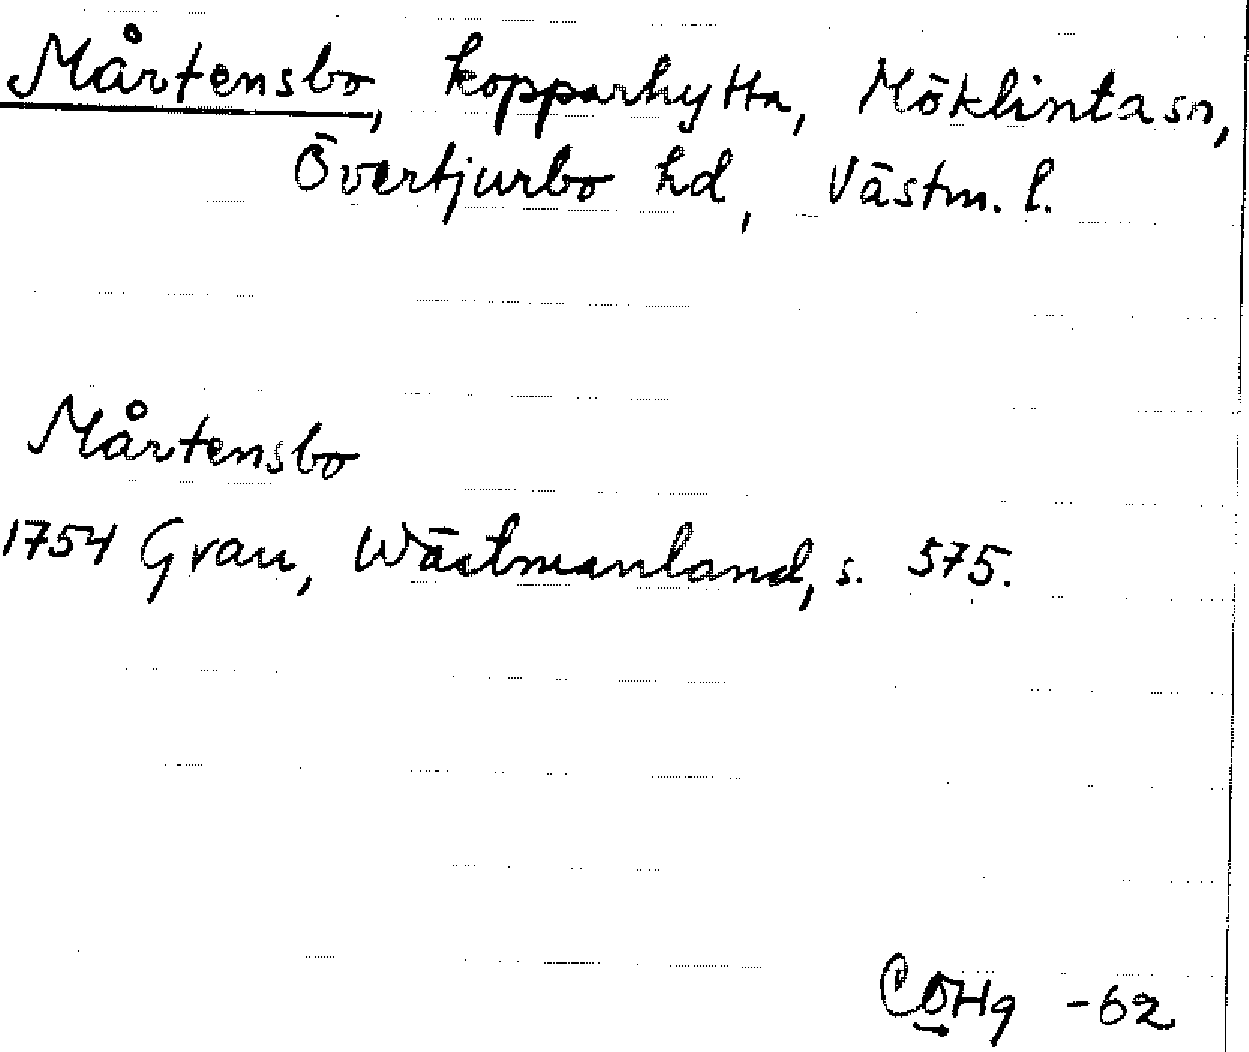 Mårtensbo, kopparhytta, Möklinta sn,
Övertjurbo hd, Västm. l.
Mårtensbo
1754 Grau, Wästmanland, s. 575.
-62